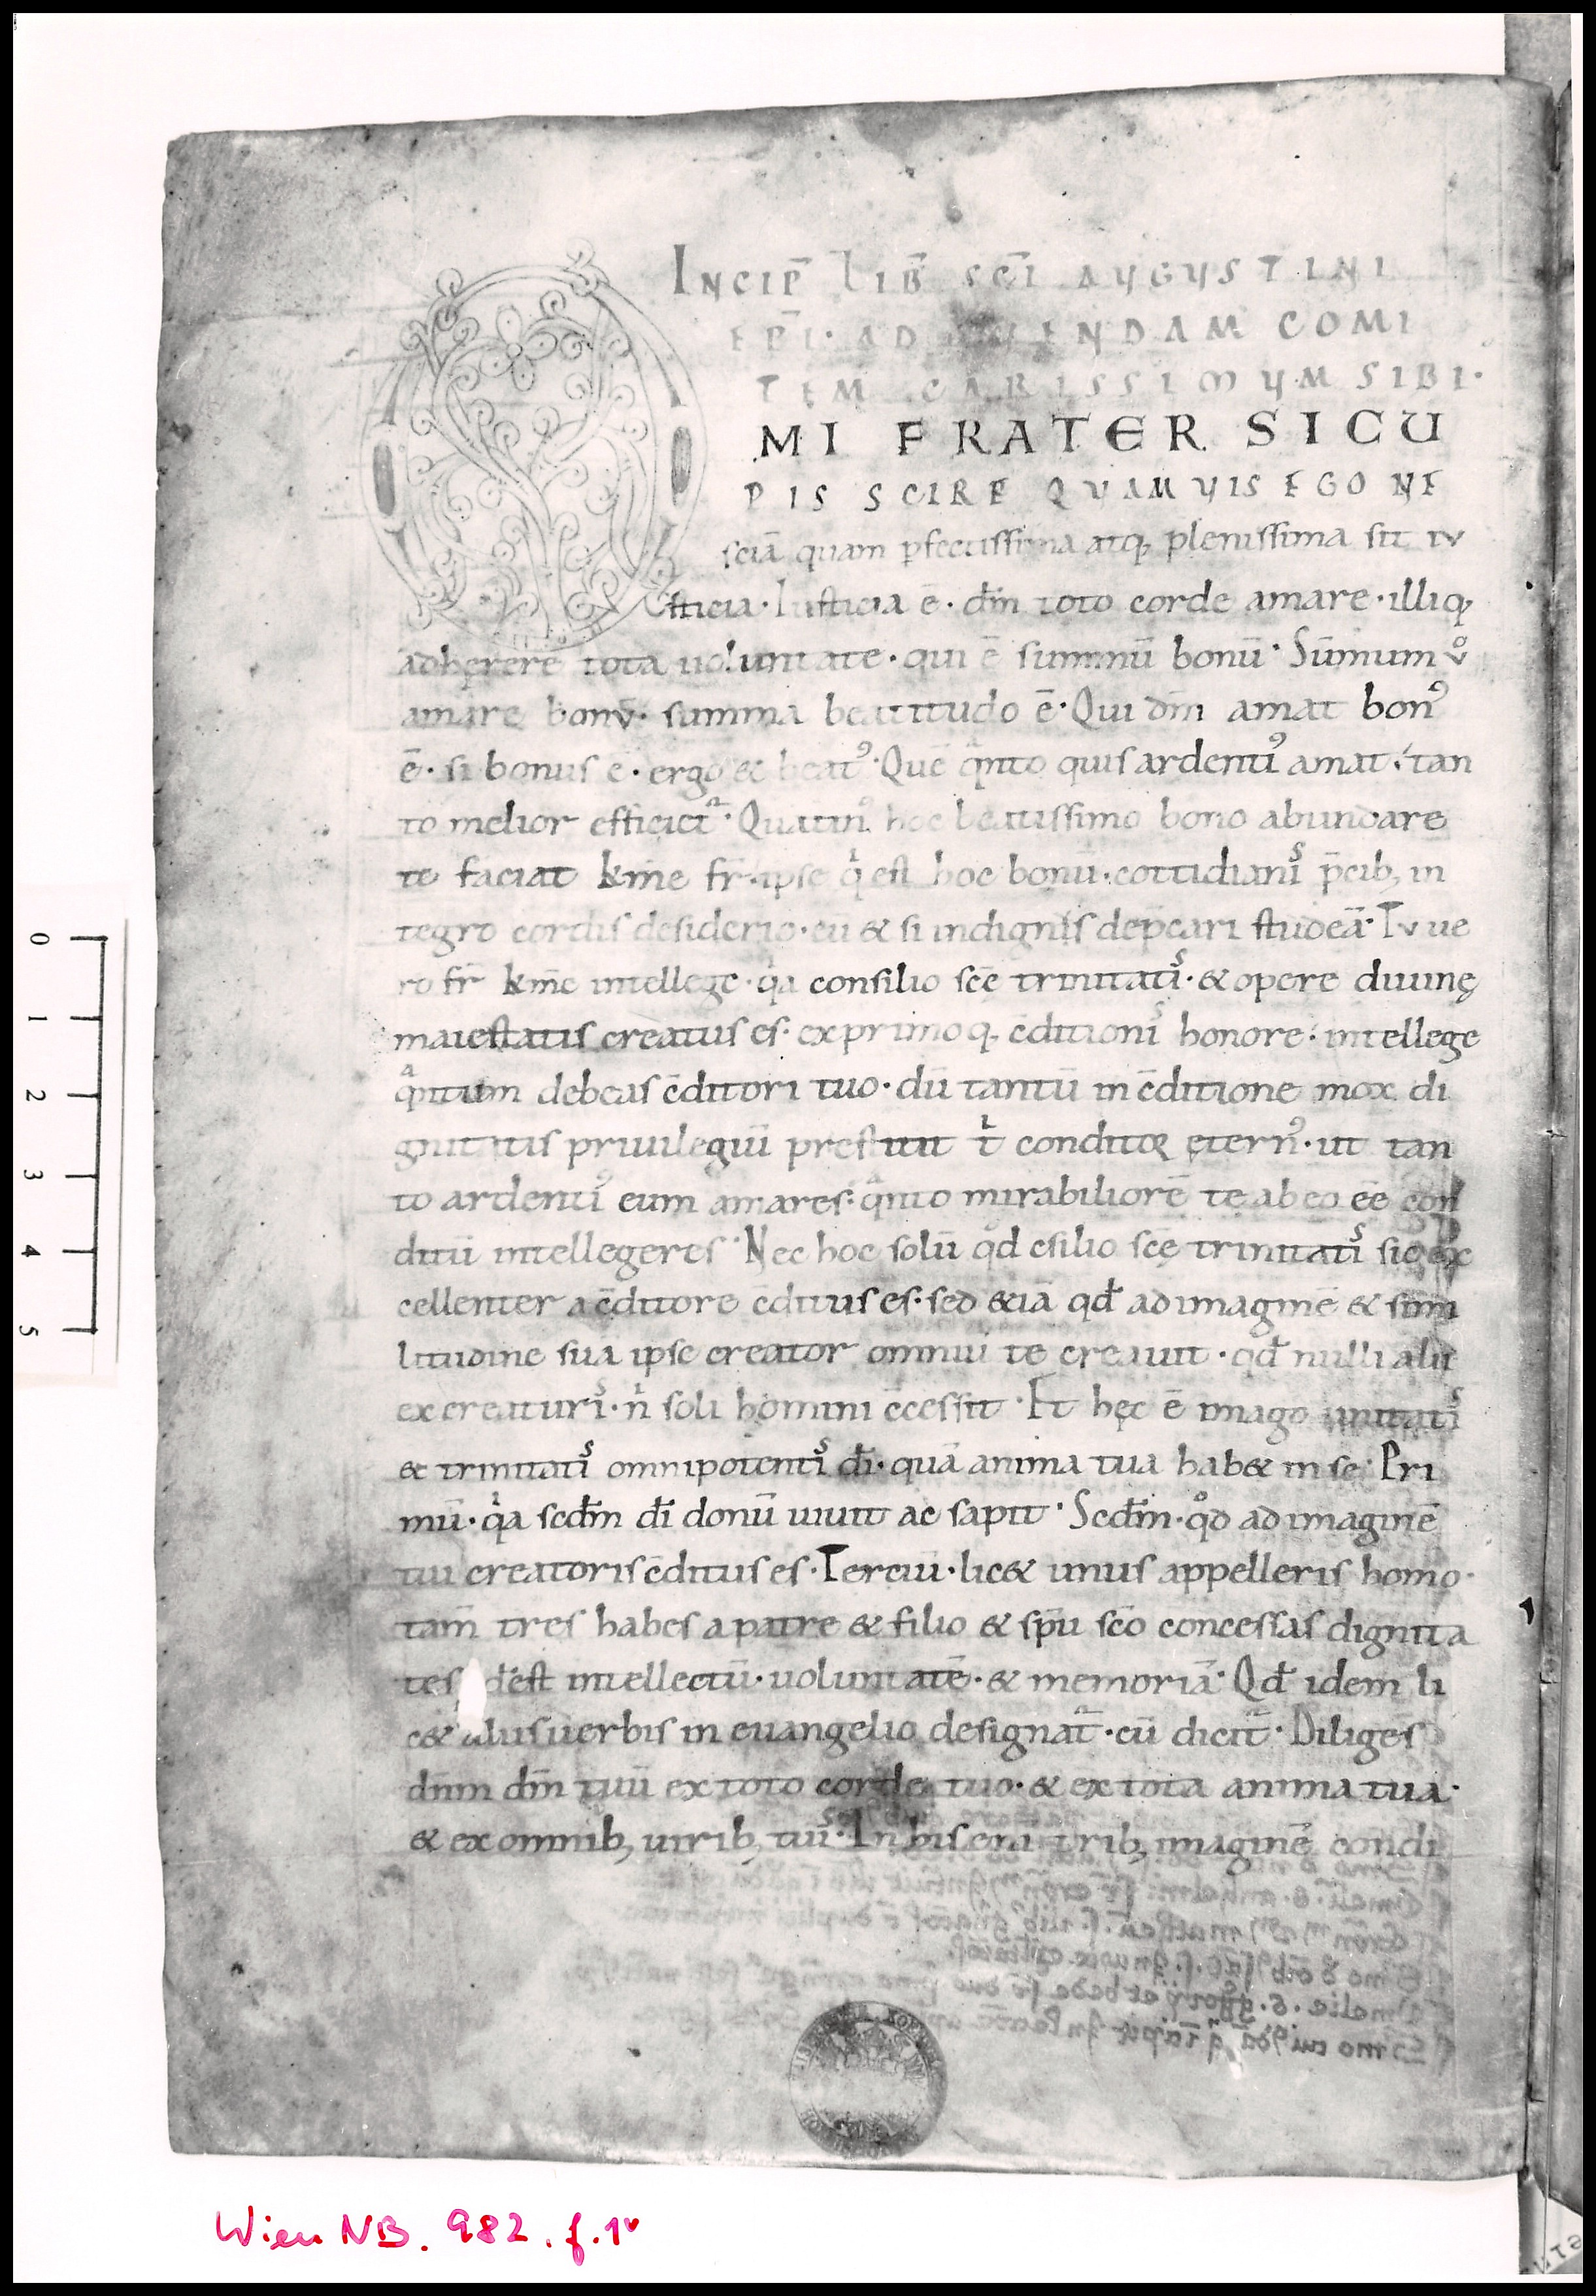 INCIP̄ LIB̄ SC̄I AUGUSTINI
EP̄I · AD ENDAM COMI
TEM CARISSIMUM SIBI ·
O MI FRATER SICU
PIS SCIRE QUAMUIS EGO NE
sciā quam ꝑfectissima atq; plenissima sit iu
sticia · Iusticia ē · dm̄ toto corde amare · illiq;
adherere tota uoluntate · qui ē summū bonū · Sūmum uͦ
amare bonū · summa beatitudo ē · Qui dm̄ amat bonꝰ
ē · si bonus ē · ergo & beatꝰ · Quē qͣnto quis ardentiꝰ amat · tan
to melior efficit᷑ · Quatinꝰ hoc beatissimo bono abundare
te faciat km̄e fr̄ · ipse qͥ est hoc bonū · cottidianiˢ p̄cib; in
tegro cordis desiderio · eū & si indignus dep̄cari studeā · Tu ue
ro fr̄ km̄e intellege · qͥa consilio sc̄e trinitatiˢ · & opere diuinę
maiestatis creatus es · ex primoq; c̄ditioniˢ honore · intellege
qͣntum debeas c̄ditori tuo · dū tantū in c̄ditione mox di
gnitatis priuilegiū prestitit tͥ conditor ęternꝰ · ut tan
to ardentiꝰ eum amares · qͣnto mirabiliorē te ab eo ēe con
ditū intellegeres · Nec hoc solū qͦd c̄silio sc̄ę trinitatiˢ sic ex
cellenter a c̄ditore c̄ditus es · sed &iā qđ ad imaginē & simi
litudinē suā ipse creator omniū te creauit · qđ nulli alii
ex creaturiˢ · nͥ soli homini c̄cessit · Et hęc ē imago unitatiˢ
& trinitatiˢ omnipotentiˢ dī · quā anima tua hab& in se · Pri
mū · qͥa scd̄m dī donū uiuit ac sapit · Scd̄m · qͦd ad imaginē
tui creatoris c̄ditus es · Terciū · lic& unus appelleris homo ·
tam̄ tres habes a patre & filio & sp̄u sc̄o concessas dignita
tes id ē̄st intellectū · uoluntatē · & memoriā · Qđ idem li
c& aliis uerbis in euangelio designat᷑ · cū dicit᷑ · Diliges
dn̄m dm̄ tuū ex toto corde tuo · & ex tota anima tua ·
& ex omnib; uirib; tuiˢ · In his eni trib; imaginē condi
0 1 2 3 4 5
Wien NB. 982. f. 1v